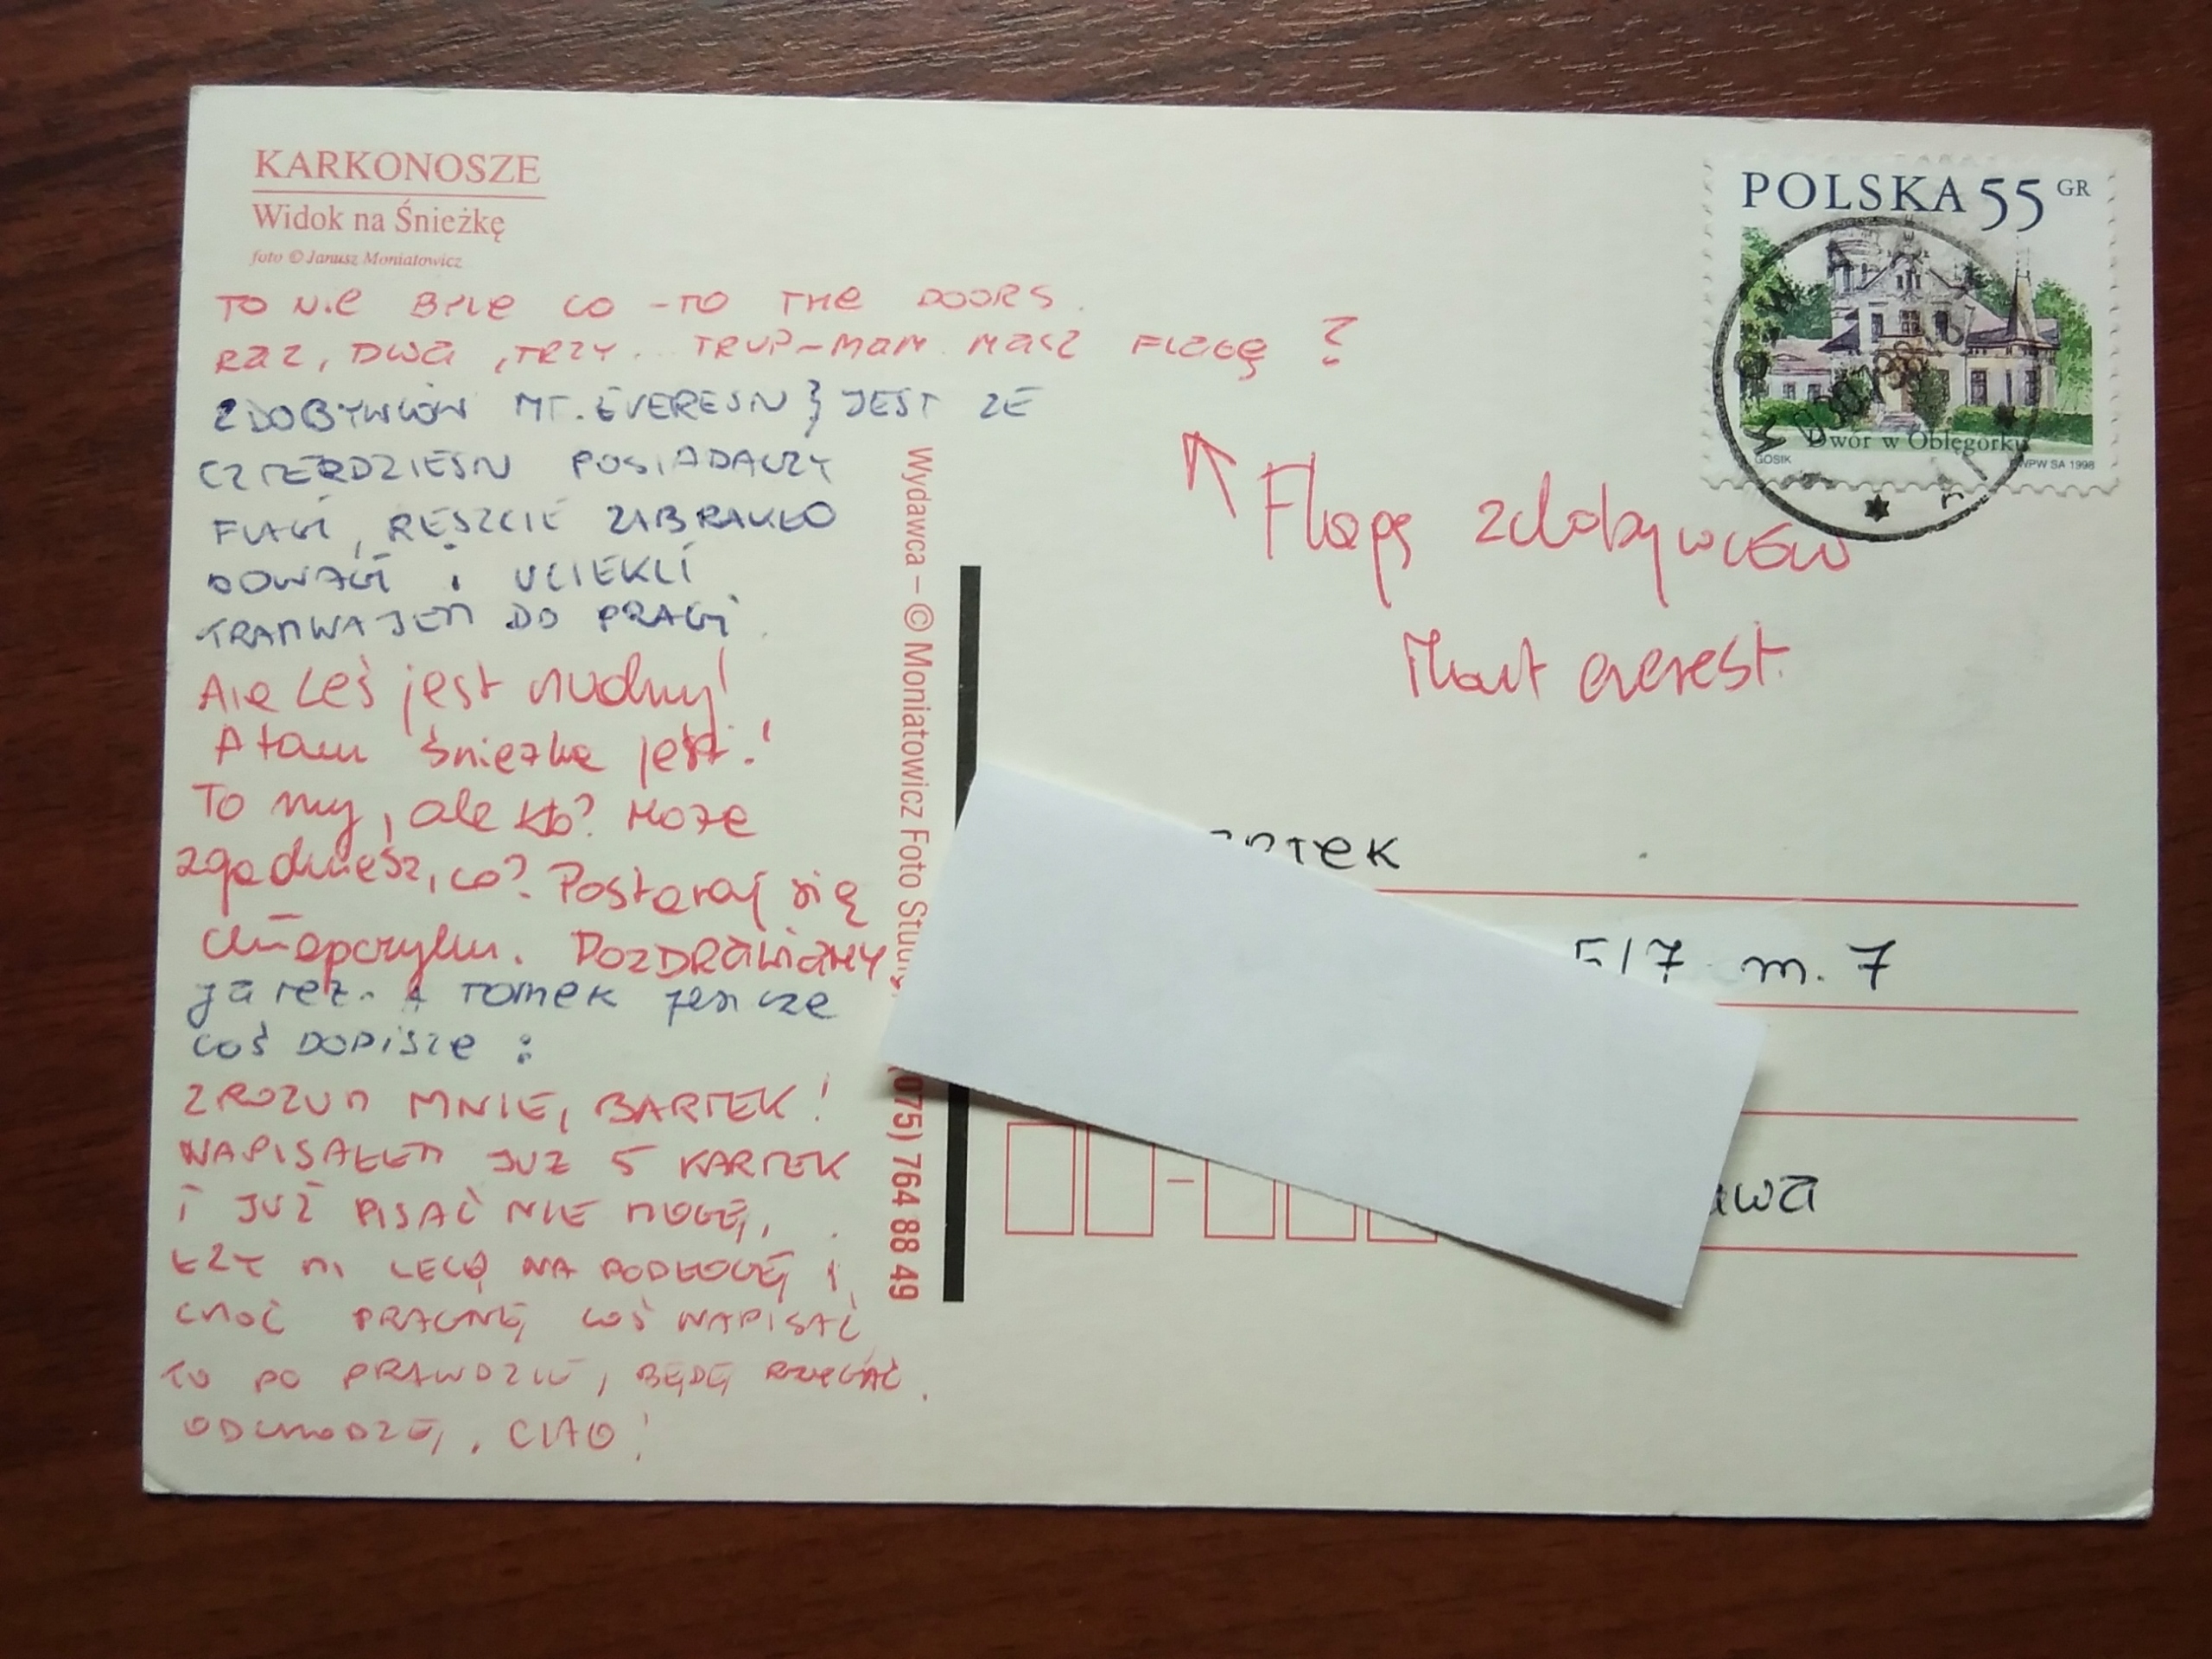 KARKONOSZE
Widok na Śnieżkę
foto © Janusz Moniatowicz
POLSKA 55 GR
Dwór w Oblęgorku
GOSIK
PWPW SA 1998
TO NIE BYLE CO - TO THE DOORS.
RAZ, DWA, TRZY... TRUP - MAM. MASZ FLAGĘ?
ZDOBYWCÓW MT. EVERESTU JEST ZE
CZTERDZIESTU POSIADACZY
FLAGI, RESZCIE ZABRAKŁO
ODWAGI I UCIEKLI
TRAMWAJEM DO PRAGI.
Ale Leś jest nudny!
A tam śnieżka jest!
To my, ale kto? Może
zgadniesz, co? Postaraj się
chłopczyku. POZDRAWIAMY
ja też. A TOMEK jeszcze
coś DOPISZE:
ZROZUM MNIE, BARTEK!
NAPISAŁEM JUŻ 5 KARTEK
I JUŻ PISAĆ NIE MOGĘ,
ŁZY MI LECĄ NA PODŁOGĘ I
CHOĆ PRAGNĘ COŚ NAPISAĆ
TO PO PRAWDZIE, BĘDĘ RZYGAĆ.
ODCHODZĘ, CIAO!
Flagę zdobywców
Mout everest.
Wydawca – © Moniatowicz Foto Stud
(075) 764 88 49
rtek
5/7 m. 7
awa